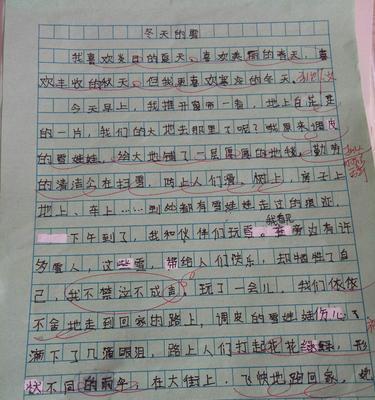 冬天的雪
我喜欢炎日的夏天、喜欢美丽的春天，喜
欢丰收的秋天，但我更喜欢寒冷的冬天，
今天早上，我推开窗帘一看，地上白茫茫
的一片，我们的大地去那里了呢？哦原来调皮
的雪娃娃，给大地铺了一层厚厚的地毯，勤劳
的清洁公在扫雪，路上人们滑，树上，房子上
地上、车上……到处都有雪娃娃走过的痕迹，
下午到了，我和伙伴们玩雪。我看见旁边有许
多雪人，这些雪，带给人们快乐，却牺牲了自
己，我不禁泣不成声，玩了一会儿，我们依依
不舍地走到回家的路上，调皮的雪娃娃伤心
滴下了几滴眼泪，路上人们打起花花绿绿，形
状不同的雨伞，在大街上，飞快地跑回家，